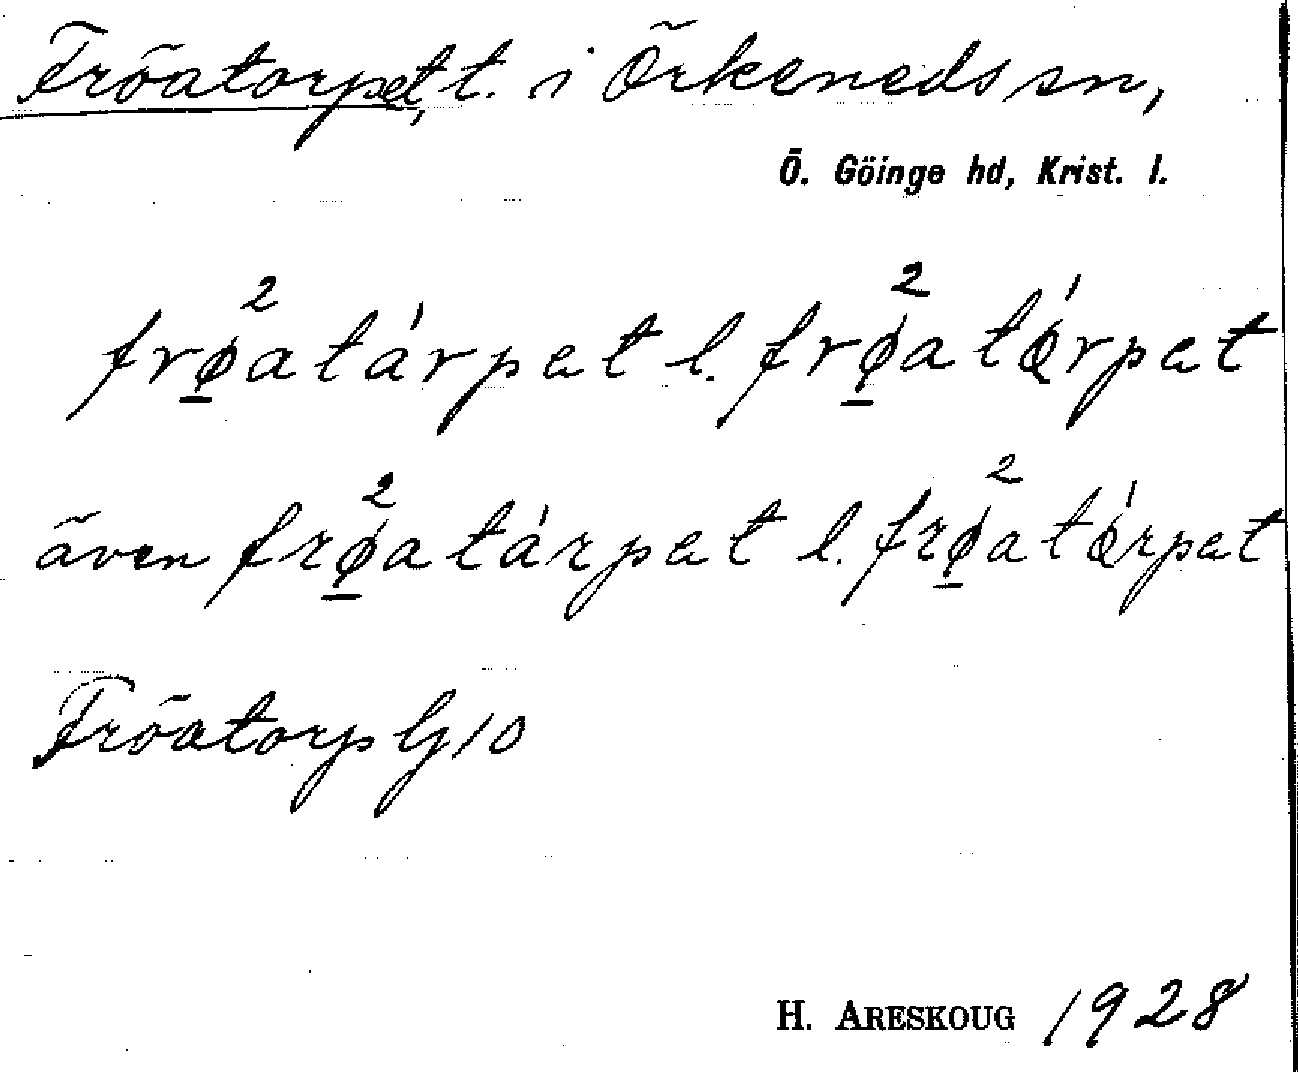 Fröatorpet, t. i Örkeneds sn,
Ö. Göinge hd, Krist. l.
frø̱²atárpet l. frø̱²atǿrpet
även frø̱²atárpet l. frø̱²atǿrpet
Fröatorp Gj 10
H. ARESKOUG 1928